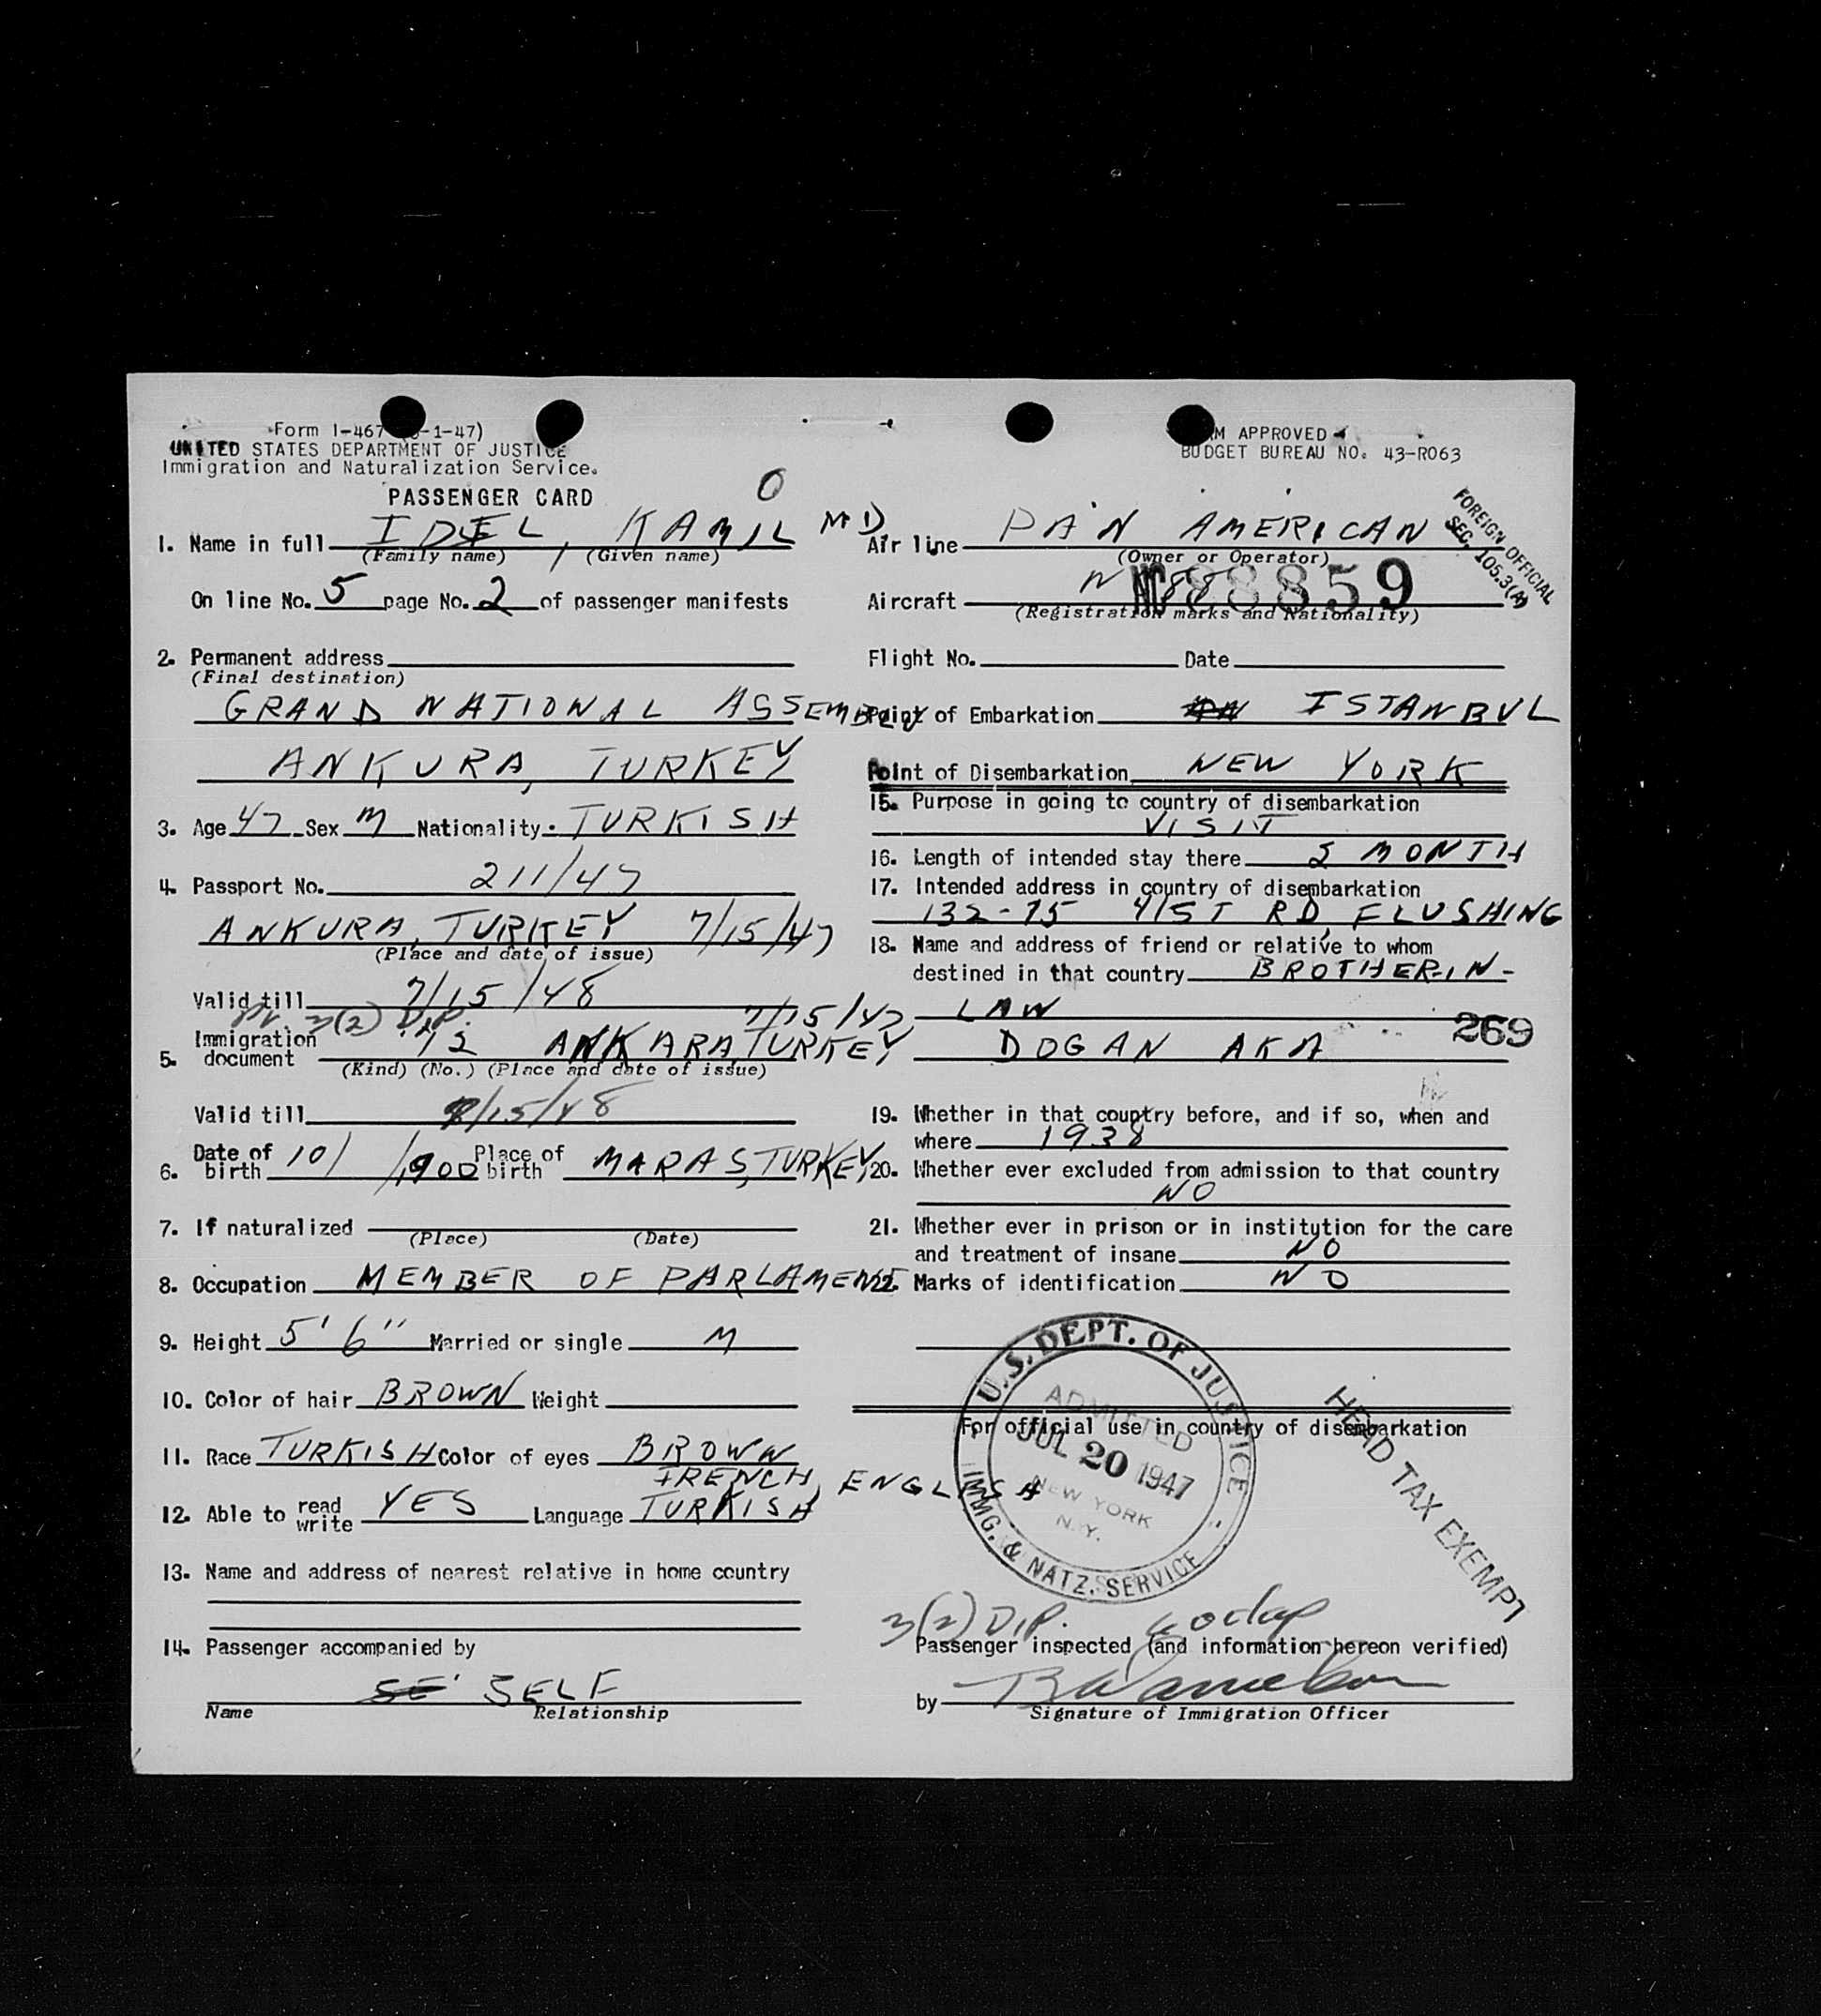 Form I-467 -1-47)
UNITED STATES DEPARTMENT OF JUSTICE
Immigration and Naturalization Service.
PASSENGER CARD
O
1. Name in full IDEL, KAMIL MD
(Family name) (Given name)
On line No. 5 page No. 2 of passenger manifests
2. Permanent address
(Final destination)
GRAND NATIONAL ASSEMBLY
ANKURA, TURKEY
3. Age 47 Sex M Nationality TURKISH
4. Passport No. 211/47
ANKURA, TURKEY 7/15/47
(Place and date of issue)
Valid till 7/15/48
3(2) DIP.
7/15/47
5. Immigration document ANKARA, TURKEY
(Kind) (No.) (Place and date of issue)
Valid till 7/15/48
6. Date of birth 10/ /1900 Place of birth MARAS, TURKEY
7. If naturalized
(Place) (Date)
8. Occupation MEMBER OF PARLAMENT
9. Height 5' 6" Married or single M
10. Color of hair BROWN Weight
11. Race TURKISH Color of eyes BROWN
FRENCH, ENGLISH
12. Able to read write YES Language TURKISH
13. Name and address of nearest relative in home country
14. Passenger accompanied by
SELF
Name Relationship
M APPROVED
BUDGET BUREAU NO. 43-R063
FOREIGN OFFICIAL
SEC. 105.3(A)
Air line PAN AMERICAN
(Owner or Operator)
Aircraft NC 88859
(Registration marks and Nationality)
Flight No. Date
Point of Embarkation ISTANBUL
Point of Disembarkation NEW YORK
15. Purpose in going to country of disembarkation
VISIT
16. Length of intended stay there MONTH
17. Intended address in country of disembarkation
132-75 41ST RD, FLUSHING
18. Name and address of friend or relative to whom
destined in that country BROTHER-IN-
LAW
269
DOGAN AKA
19. Whether in that country before, and if so, when and
where 1938
20. Whether ever excluded from admission to that country
NO
21. Whether ever in prison or in institution for the care
and treatment of insane NO
22. Marks of identification NO
For official use in country of disembarkation
U.S. DEPT. OF JUSTICE
ADMITTED
JUL 20 1947
NEW YORK
N.Y.
IMMG. & NATZ. SERVICE
HEAD TAX EXEMPT
3(2) DIP.
Passenger inspected (and information hereon verified)
by
Signature of Immigration Officer